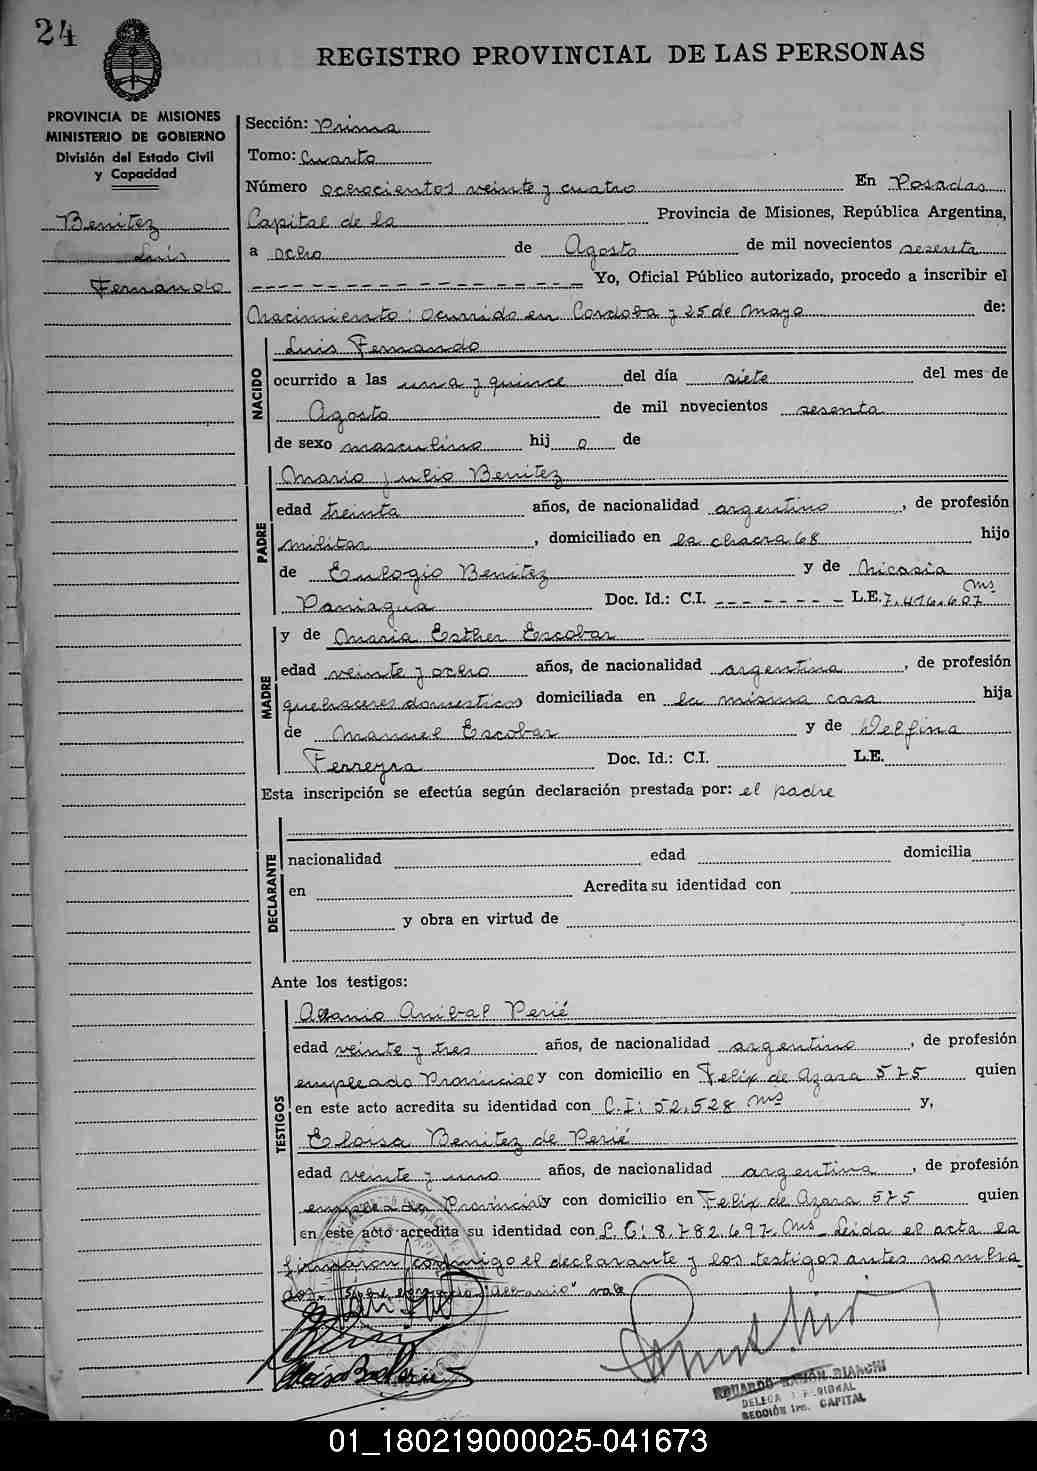 24
REGISTRO PROVINCIAL DE LAS PERSONAS
PROVINCIA DE MISIONES
MINISTERIO DE GOBIERNO
División del Estado Civil
y Capacidad
Benitez
Luis
Fernando
Sección: Prima
Tomo: Cuarto
Número ochocientos veinte y cuatro En Posadas
Capital de la Provincia de Misiones, República Argentina,
a ocho de Agosto de mil novecientos sesenta
Yo, Oficial Público autorizado, procedo a inscribir el
Nacimiento: ocurrido en Cordoba y 25 de Mayo de:
NACIDO
Luis Fernando
ocurrido a las una y quince del día siete del mes de
Agosto de mil novecientos sesenta
de sexo masculino hij o de
PADRE
Mario Julio Benitez
edad treinta años, de nacionalidad argentino, de profesión
militar, domiciliado en la chacra 68 hijo
de Eulogio Benitez y de Nicasia
Paniagua Doc. Id.: C.I. - - - - - - - L.E. 7.416.607 Ms
MADRE
y de Maria Esther Escobar
edad veinte y ocho años, de nacionalidad argentina, de profesión
quehaceres domesticos domiciliada en la misma casa hija
de Manuel Escobar y de Delfina
Ferreyra Doc. Id.: C.I. L.E.
Esta inscripción se efectúa según declaración prestada por: el padre
DECLARANTE
nacionalidad edad domicilia
en Acredita su identidad con
y obra en virtud de
Ante los testigos:
TESTIGOS
Anibal Perié
edad veinte y tres años, de nacionalidad argentino, de profesión
empleado Provincial y con domicilio en Felix de Azara 575 quien
en este acto acredita su identidad con C.I: 52.528 Ms y,
Eloisa Benitez de Perié
edad veinte y uno años, de nacionalidad argentina, de profesión
empleada Provincial y con domicilio en Felix de Azara 575 quien
en este acto acredita su identidad con L.C: 8.782.697. Ms - Leida el acta la
firmaron conmigo el declarante y los testigos antes nombra
dos.- vale
EDUARDO RAMÓN BIANCHI
SECCIÓN 1ra. CAPITAL
01_180219000025-041673